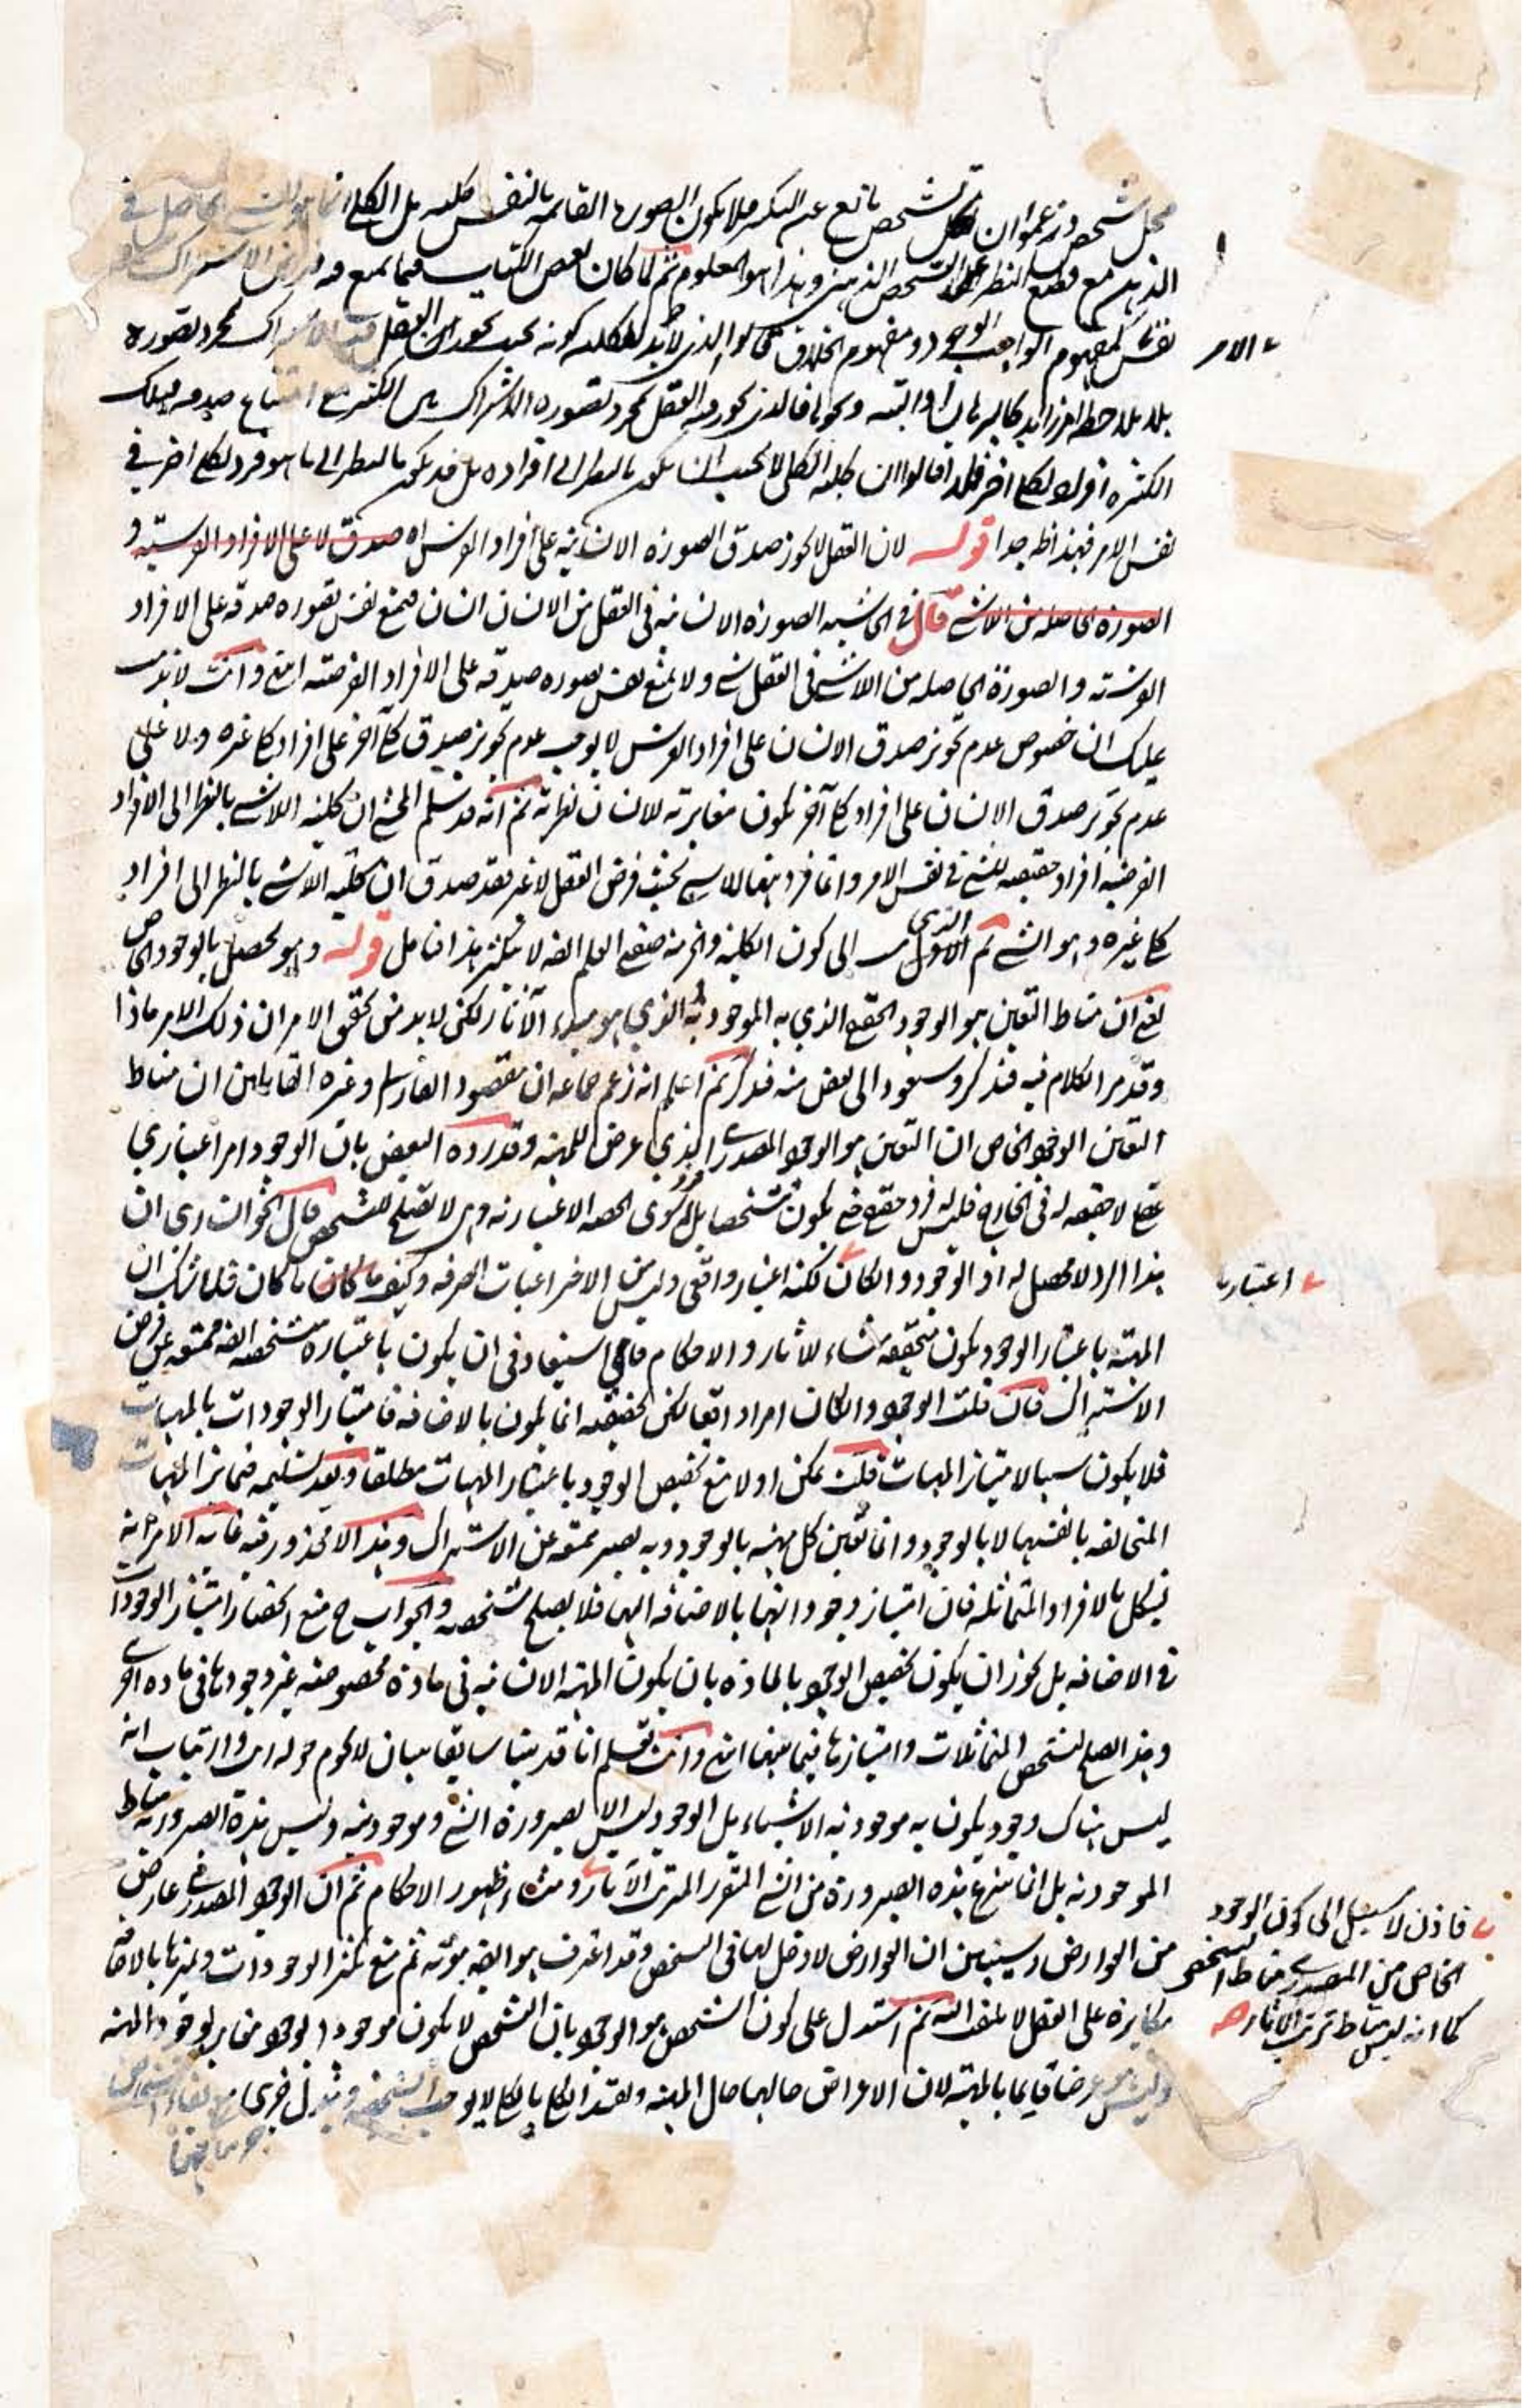 محل شخص وزعموا ان كل تشخص مانع عن التكثر فلا يكون الصورة القائمة بالنفس كلية بل الكلي انما هو الحاصل في
الذهن مع قطع النظر عن التشخص الذهني وهذا هو المعلوم ثم لما كان بعض الكليات مما يمنع فيه الاشتراك
كمفهوم الواجب الوجود ومفهوم الخلاق قالوا الذي لا بد للكلية كونه بحيث يجوز العقل الاشتراك بمجرد تصوره
بلا ملاحظة امر زائد كالبرهان او البتة ونحوها فالذي يجوز فيه العقل بمجرد تصوره الاشتراك بين الكثرين مع امتناع صدقه لتلك
الكثرة افراد لكلي اخر فلذا قالوا ان كلية الكلي لا يجب ان يكون بالنظر الى افراده بل قد يكون بالنظر الى ما هو فرد لكلي اخر في
نفس الامر فهذا ظهر جدا قوله لان العقل لا يجوز صدق الصورة الانسانية على افراد الفرس اه صدق لا على الافراد الفرسية و
الصورة الحاصلة من اللاشئ قال في الحاشية الصورة الانسانية في العقل من الانسان انسان فيمنع نفس تصوره صدقه على الافراد
الفرسية والصورة الحاصلة من اللاشئ في العقل شئ ولا يمنع نفس تصوره صدقه على الافراد الفرضية انتهى وانت لا يذهب
عليك ان خصوص عدم تجويز صدق الانسان على افراد الفرس لا يوجب عدم تجويز صدق كلي آخر على افراد كلي غيره ولا على
عدم تجويز صدق الانسان على افراد كلي آخر يكون مغايرته للانسان نظرية ثم انه قد سلم المحشي ان كلية اللاشئ بالنظر الى الافراد
الفرضية افراد حقيقية للشئ في نفس الامر وانما فرديتها للاشئ بحيث فرض العقل لا غير فقد صدق ان كلية اللاشئ بالنظر الى افراد
كلي غيره وهو الشئ ثم الاول الذي الى كون الكلية والجزئية صفتي العلم الفه لا ينكر هذا فتامل قوله وهو يحصل بالوجود الخاص
يعني ان مناط التعين هو الوجود الحقيقي الذي به الموجودية الذي هو مبدء الآثار لكن لا بد من تحقق الامر ان ذلك الامر ماذا
وقد مر الكلام فيه فتذكر وسنعود الى بعض منه فتذكر ثم اعلم انه زعم جماعة ان مقصود الفارابي وغيره القائلين ان مناط
التعين الوجود الخاص ان التعين هو الوجود المصدري الذي عرض للمهية وقد رده البعض بان الوجود امر اعتباري
عقلي لا حقيقة له في الخارج فليس له فرد حقيقي فيكون تشخصا بل افراده سوى الحصة الاعتبارية وهي لا تصلح للتشخص قال الخوانساري ان
هذا الرد لا محصل له اذ الوجود وان كان لكنه اعتبار واقعي وليس من الاختراعيات الصرفة وكيف ما كان ما كان فلا شك ان
المهية باعتبار الوجود يكون متحققة منشاء للاثار والاحكام فاي استبعاد في ان يكون باعتباره متشخصة الفه ممتنعة عن فرض
الاشتراك فان قلت الوجود وان كان امرا واقعا لكن تحققه انما يكون بالاضافة فامتياز الوجودات بالمهيات
فلا يكون سببا لامتياز المهيات قلت يمكن اولا منع تخصيص الوجود باعتبار المهيات مطلقا وبعد تسليمه فتمايز المهيات
المتخالفة بانفسها لا بالوجود وانما تعين كل مهية بالوجود وبه يصير ممتنعة عن الاشتراك وهذا لا محذور فيه غاية الامر انه
يشكل بالافراد المتماثلة فان امتياز وجوداتها بالاضافة اليها فلا يصلح متشخصة والجواب ح منع انحصار امتياز الوجودات
في الاضافة بل يجوز ان يكون تخصيص الوجود بالمادة بان يكون المهية الانسانية في مادة مخصوصة غير وجودها في مادة اخرى
وهذا يصلح لتشخص المتماثلات وامتيازها فيما بينها انتهى وانت تعلم انا قد بينا سابقا ببيان لا يحوم حوله ارتياب انه
ليس هناك وجود يكون به موجودية الاشياء بل الوجود ليس الا لصيرورة الشئ وموجوديته وليس هذه الصيرورة مناط
الموجودية بل انما ينتزع هذه الصيرورة من الشئ المتقرر المترتب الآثار ومنشاء ظهور الاحكام ثم ان الوجود المصدري عارض
من العوارض وسيتبين ان العوارض لا دخل لها في التشخص وقد اعترف هو الفه بهويته ثم منع تكثر الوجودات وتميزها بالاضافة
مكابرة على العقل لا يلتفت اليه ثم استدل على كون التشخص هو الوجود بان التشخص لا يكون موجودا لوجود مغاير لوجود المهية
وليس عرضا قايما بالمهية لان الاعراض حالها حال المهية وتقيد الكلي بالكلي لا يوجب التشخص
الامر
اعتباريا
فاذن لا سبيل الى كون الوجود
الخاص من المصدري مناط التشخص
كما انه ليس مناط ترتب الآثار صح